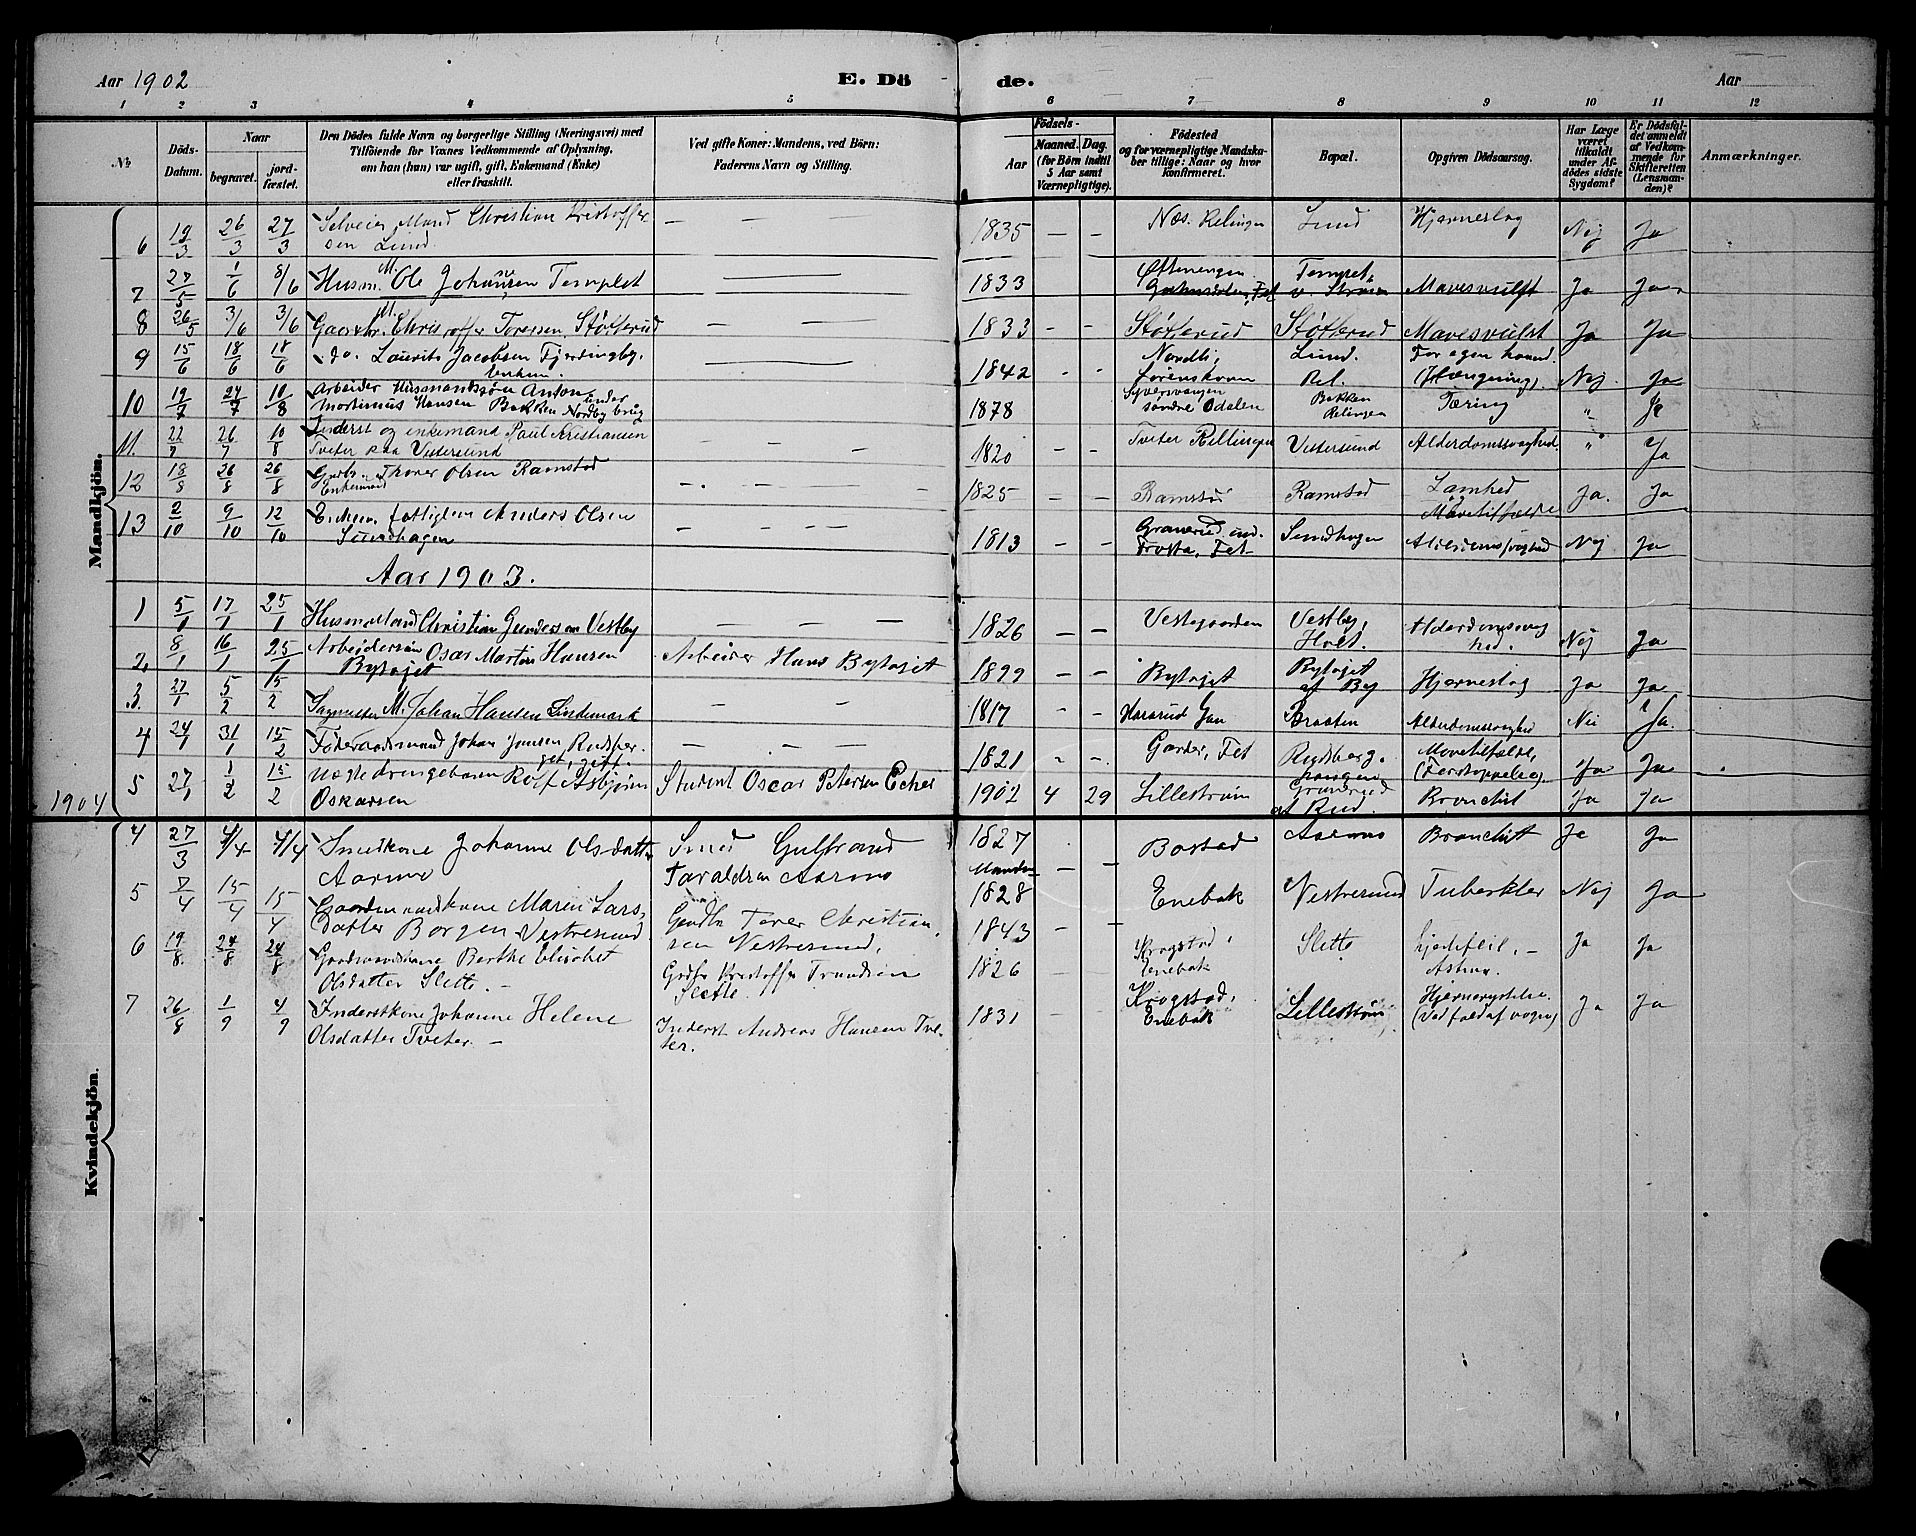 Aar 1902
E. Döde.
Aar
1 2 3 4 5 6 7 8 9 10 11 12
No
Döds-Datum.
Naar
begravet.
jordfæstet.
Den Dödes fulde Navn og borgerlige Stilling (Næringsvei) med
Tilföiende for Voxnes Vedkommende af Oplysning,
om han (hun) var ugift, gift, Enkemand (Enke)
eller fraskilt.
Ved gifte Koner: Mandens, ved Börn:
Faderens Navn og Stilling.
Födsels-
Aar
Maaned. Dag.
(for Börn indtil
5 Aar samt
Værnepligtige).
Födested
og for værnepligtige Mandskaber tillige: Naar og hvor
konfirmeret.
Bopæl.
Opgiven Dödsaarsag.
Har Læge
været
tilkaldt
under Afdödes sidste
Sygdom?
Er Dödsfaldet anmeldt
af Vedkommende for
Skifteretten
(Lensmanden)?
Anmærkninger.
Mandkjön.
6 19/3 26/3 27/3 Selveier, Mand Christian Kristoffer
sen Lund. — — — 1835 — — Næs. Relingen Lund Hjerneslag Nej Ja
7 27/5 1/6 8/6 Husm. M. Ole Johansen Templet 1833 Tempet Mavesvulst Ja Ja
8 26/5 3/6 3/6 Gaardbr. M. Christoffer Toressen Støtterud — — — 1833 - - Støtterud Støtterud Mavesvulst Ja Ja
9 15/6 18/6 18/6 do. Laurits Jacobsen Fjerdingby, 1842 - - Nordli, Lørenskoven Lund. Rel. For egen haand. (Hængning). Nej. Ja
10 19/7 24/7 10/8 Arbeider Husmandssøn Anton
Martinius Hansen Bakken under Nordby brug 1878 søndre Odalen Bakken Relingen Tæring " Ja
11. 22/7 26/7 10/8 Inderst og enkemand Paul Kristiansen
Tveter paa Vestersund - - 1820 - - Tveter Rellingen Vestersund Alderdomssvaghed. " Ja
12 18/8 26/8 26/8 Thorer Olsen Ramstad
Enkemand 1825 - - Ramstad Ramstad Lamhed Mavetilfælde Ja. Ja
13 2/10 9/10 12/10 Enkem. fattiglem Anders Olsen
Sundhagen - - - 1813 - - Fet Sundhagen Alderdomssvaghed Nej Ja
Aar 1903.
1 5/1 17/1 25/1 Husmand Christian Gundersen Vestby — — — 1826 - - Vestegaarden Vestby, Holt. Alderdomssvaghed. Nej Ja
2. 8/1 16/1 25/1 Arbeidersøn Oscar Martin Hansen
Bytajet Arbeider Hans Bytajet 1899 - - Bytajet Bytajet af By Hjerneslag Ja Ja
3. 27/1 5/2 15/2 M. Johan Hansen Lindemark - - 1817 - - Braaten Alderdomssvaghed Nei Ja.
4 24/1 31/1 15/2 Føderaadsmand Johan Jensen Rudsberget, gift. — . — 1821 - - Garder, Fet Rudsberg. Mavetilfælde, (Forstoppelse) Ja Ja
5 27/1 1/2 15/2 Uægte drengebarn Rolf Asbjørn
Oskarsen Student Oscar Petersen Ecker 1902 4 29 Lillestrøm af Rud. Bronchit Ja Ja
1904
Kvindekjön.
4 27/3 4/4 4/4 Smedkone Johanne Olsdatter
Aarnes Smed Gulbrand
Taraldsen Aarnes 1827 Manden 1828 — — Bostad Aarnes Bronchit Ja Ja
5 7/4 15/4 15/4 Gaardmandskone Maren Larsdatter Borgen Vestresund Gaardbr. Torer Christiansen Vestresund, 1843 - - Enebak Vestresund Tuberkler Nej Ja
6 19/8 24/8 24/8 Gaardmandskone Berthe Elisabet
Olsdatter Slette. — Grdbr Kristoffer Trundsen
Slette. 1826 Krogstad, Enebak Slette hjertefeil, — Astma. Ja Ja
7 26/8 1/9 4/9 Inderstkone Johanne Helene
Olsdatter Tveter. — Inderst Andreas Hansen Tveter. 1831 Krogstad, Enebak Lillestrøm Hjernerystelse. (Ved fald af vogn) Ja Ja